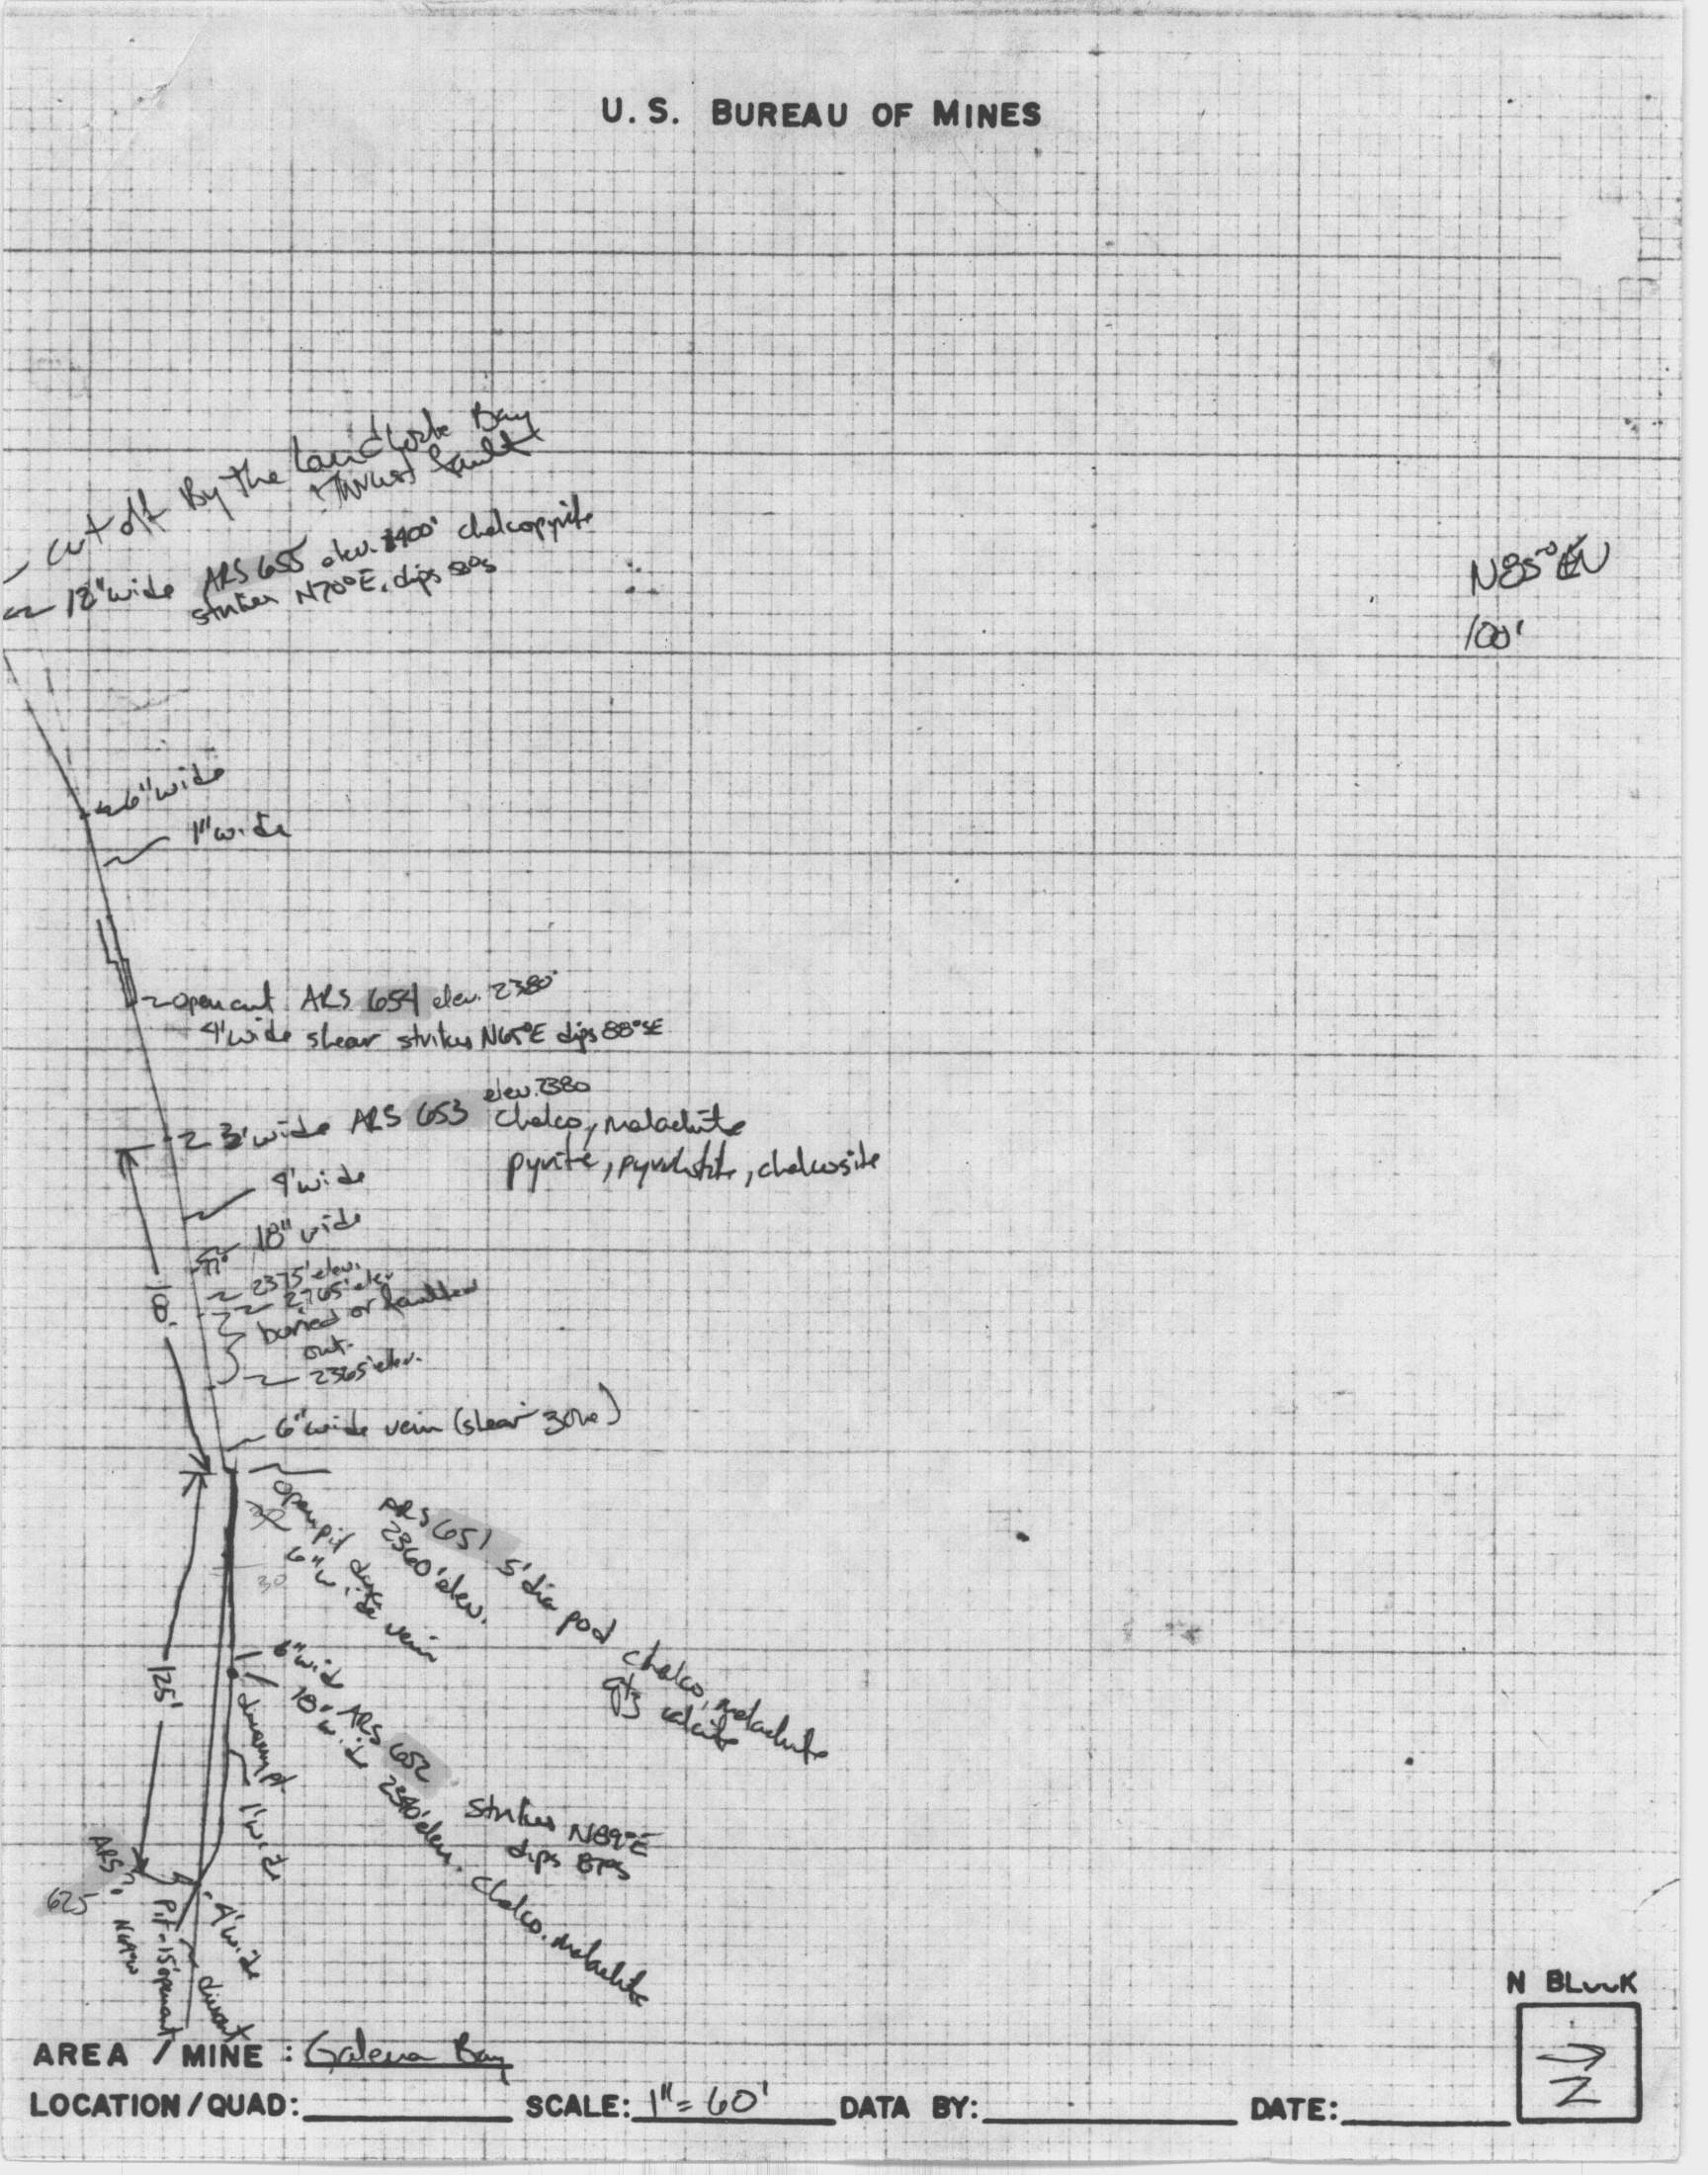 U.S. BUREAU OF MINES
cut off By the Landlock Bay
thrust fault
18" wide ARS 655 elev. 2400' chalcopyrite
strikes N70°E, dips 80°S
N85°
100'
6" wide
1" wide
open cut ARS 654 elev. 2380'
4' wide shear strikes N65°E dips 88°SE
3' wide ARS 653 elev. 2380
chalco, malachite
pyrite, pyrrhotite, chalcosite
4' wide
18" wide
77°
2375' elev.
2765' elev.
buried or faulted
out.
2365' elev.
6" wide vein (shear zone)
open pit
6" wide vein
30
ARS 651 5' dia pod chalco, malachite
2360' elev.
qtz calcite
6" wide
18" wide ARS 652
2340' elev. chalco. malachite
strikes N89°E
dips 87°S
1' wide
125'
ARS
625
4' wide
Pit - 15' opencut
AREA / MINE : Galena Bay
LOCATION/QUAD:
SCALE: 1" = 60'
DATA BY:
DATE:
N BLOCK
N